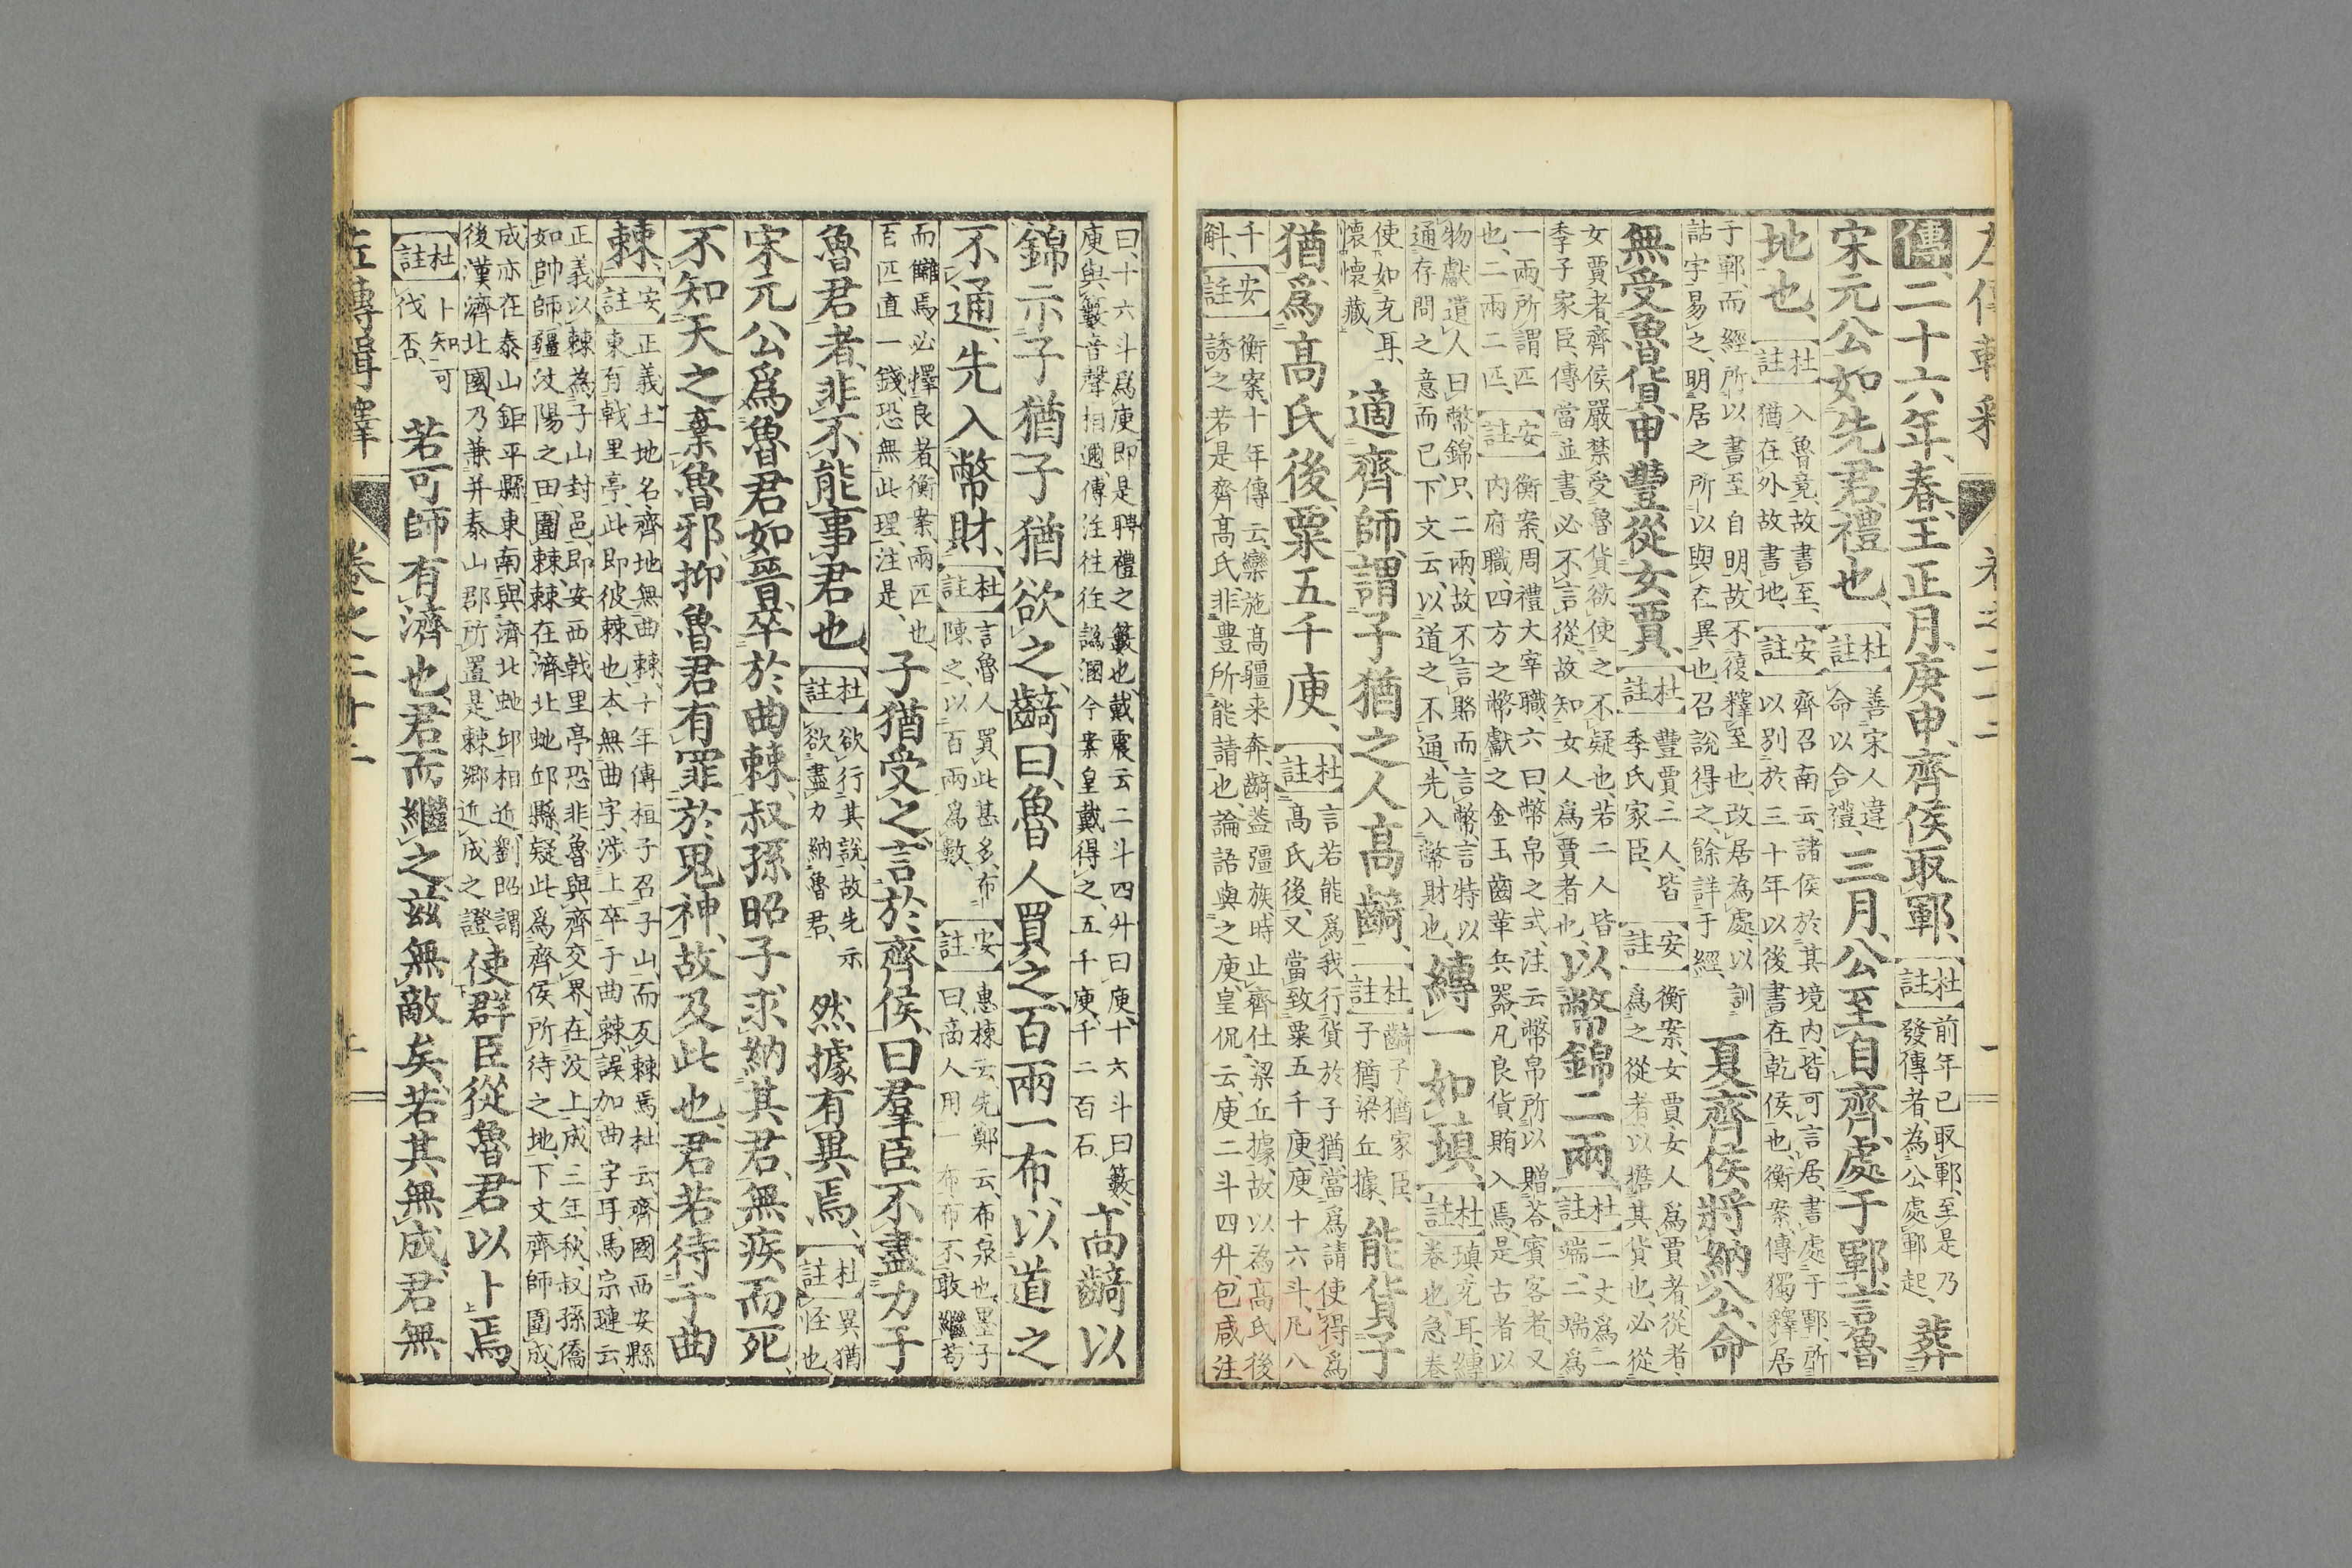 左傳輯釋 卷之二十二 一
傳、二十六年、春、王正月、庚申、齊侯取鄆、【杜註】前年已取鄆、至是乃發傳者、為公處鄆起、葬
宋元公如先君、禮也、【杜註】善宋人違命以合禮、三月、公至自齊、處于鄆、言魯
地也、【杜註】入魯竟、故書至、猶在外、故書地、【安註】齊召南云、諸侯於其境内、皆可言居、書處于鄆、所以別於三十年以後書在乾侯也、衡案、傳獨釋居
于鄆、而經所以書至自明、故不復釋至也、改居為處、以訓詁字易之、明居之所以與在異也、召說得之、餘詳于經、夏、齊侯將納公、命
無受魯貨、申豐從女賈、【杜註】豐賈二人、皆季氏家臣、【安註】衡案、女賈、女人爲賈者、從者、爲之從者、以擔其貨也、必從
女賈者、齊侯嚴禁受魯貨、欲使之不疑也、若二人皆季子家臣、傳當並書、必不言從、故知女人爲賈者也、以幣錦二兩、【杜註】二丈爲一端、二端爲
一兩、所謂匹也、二兩二匹、【安註】衡案、周禮大宰職、六曰、幣帛之式、注云、幣帛所以贈荅賓客者、又内府職、四方之幣獻之金玉齒革兵器、凡良貨賄入焉、是古者以
物獻遺人曰幣、錦只二兩、故不言賂而言幣、言特以通存問之意而已、下文云、以道之不通、先入幣財也、縳一如瑱、【杜註】瑱充耳、縳卷也、急卷
使如充耳、懷懷藏、適齊師、謂子猶之人高齮、【杜註】齮子猶家臣、子猶梁丘據、能貨子
猶、爲高氏後、粟五千庾、【杜註】言若能爲我行貨於子猶、當爲請使得爲高氏後、又當致粟五千庾、庾十六斗、凡八
千斛、【安註】衡案、十年傳云、欒施高疆来奔、齮蓋彊族、時止齊仕梁丘據、故以為高氏後誘之、若是齊高氏、非豊所能請也、論語與之庾、皇侃云、庾二斗四升、包咸注
曰、十六斗爲庾、即是聘禮之籔也、戴震云、二斗四升曰庾、十六斗曰籔、庾與籔音聲相邇、傳注往往譌溷、今案皇戴得之、五千庾、千二百石、高齮以
錦示子猶、子猶欲之、齮曰、魯人買之、百兩一布、以道之
不通、先入幣財、【杜註】言魯人買此甚多、布陳之、以百兩爲數、【安註】惠棟云、先鄭云、布、泉也、墨子曰、商人用一布布不敢繼苟
而讎焉、必擇良者、衡案、兩匹也、百匹直一錢、恐無此理、注是、子猶受之、言於齊侯、曰、羣臣不盡力于
魯君者、非不能事君也、【杜註】欲行其說、故先示欲盡力納魯君、然據有異焉、【杜註】異猶怪也、
宋元公爲魯君如晉、卒於曲棘、叔孫昭子求納其君、無疾而死、
不知天之棄魯邪、抑魯君有罪於鬼神、故及此也、君若待于曲
棘、【安註】正義、土地名、齊地無曲棘、十年傳、桓子召子山、而反棘焉、杜云、齊國西安縣東有戟里亭、此即彼棘也、本無曲字、涉上卒于曲棘、誤加曲字耳、馬宗璉云、
正義以棘為子山封邑、即安西戟里亭、恐非、魯與齊交界、在汶上、成三年、秋、叔孫僑如帥師彊汶陽之田、圍棘、棘在濟北虵邱縣、疑此爲齊侯所待之地、下文齊師圍成、
成亦在泰山鉅平縣東南、與濟北虵邱相近、劉昭謂後漢濟北國、乃兼并泰山郡所置、是棘鄉近成之證、使群臣從魯君以卜焉、
【杜註】卜知可伐否、若可、師有濟也、君而繼之、茲無敵矣、若其無成、君無
左傳輯釋 卷之二十二